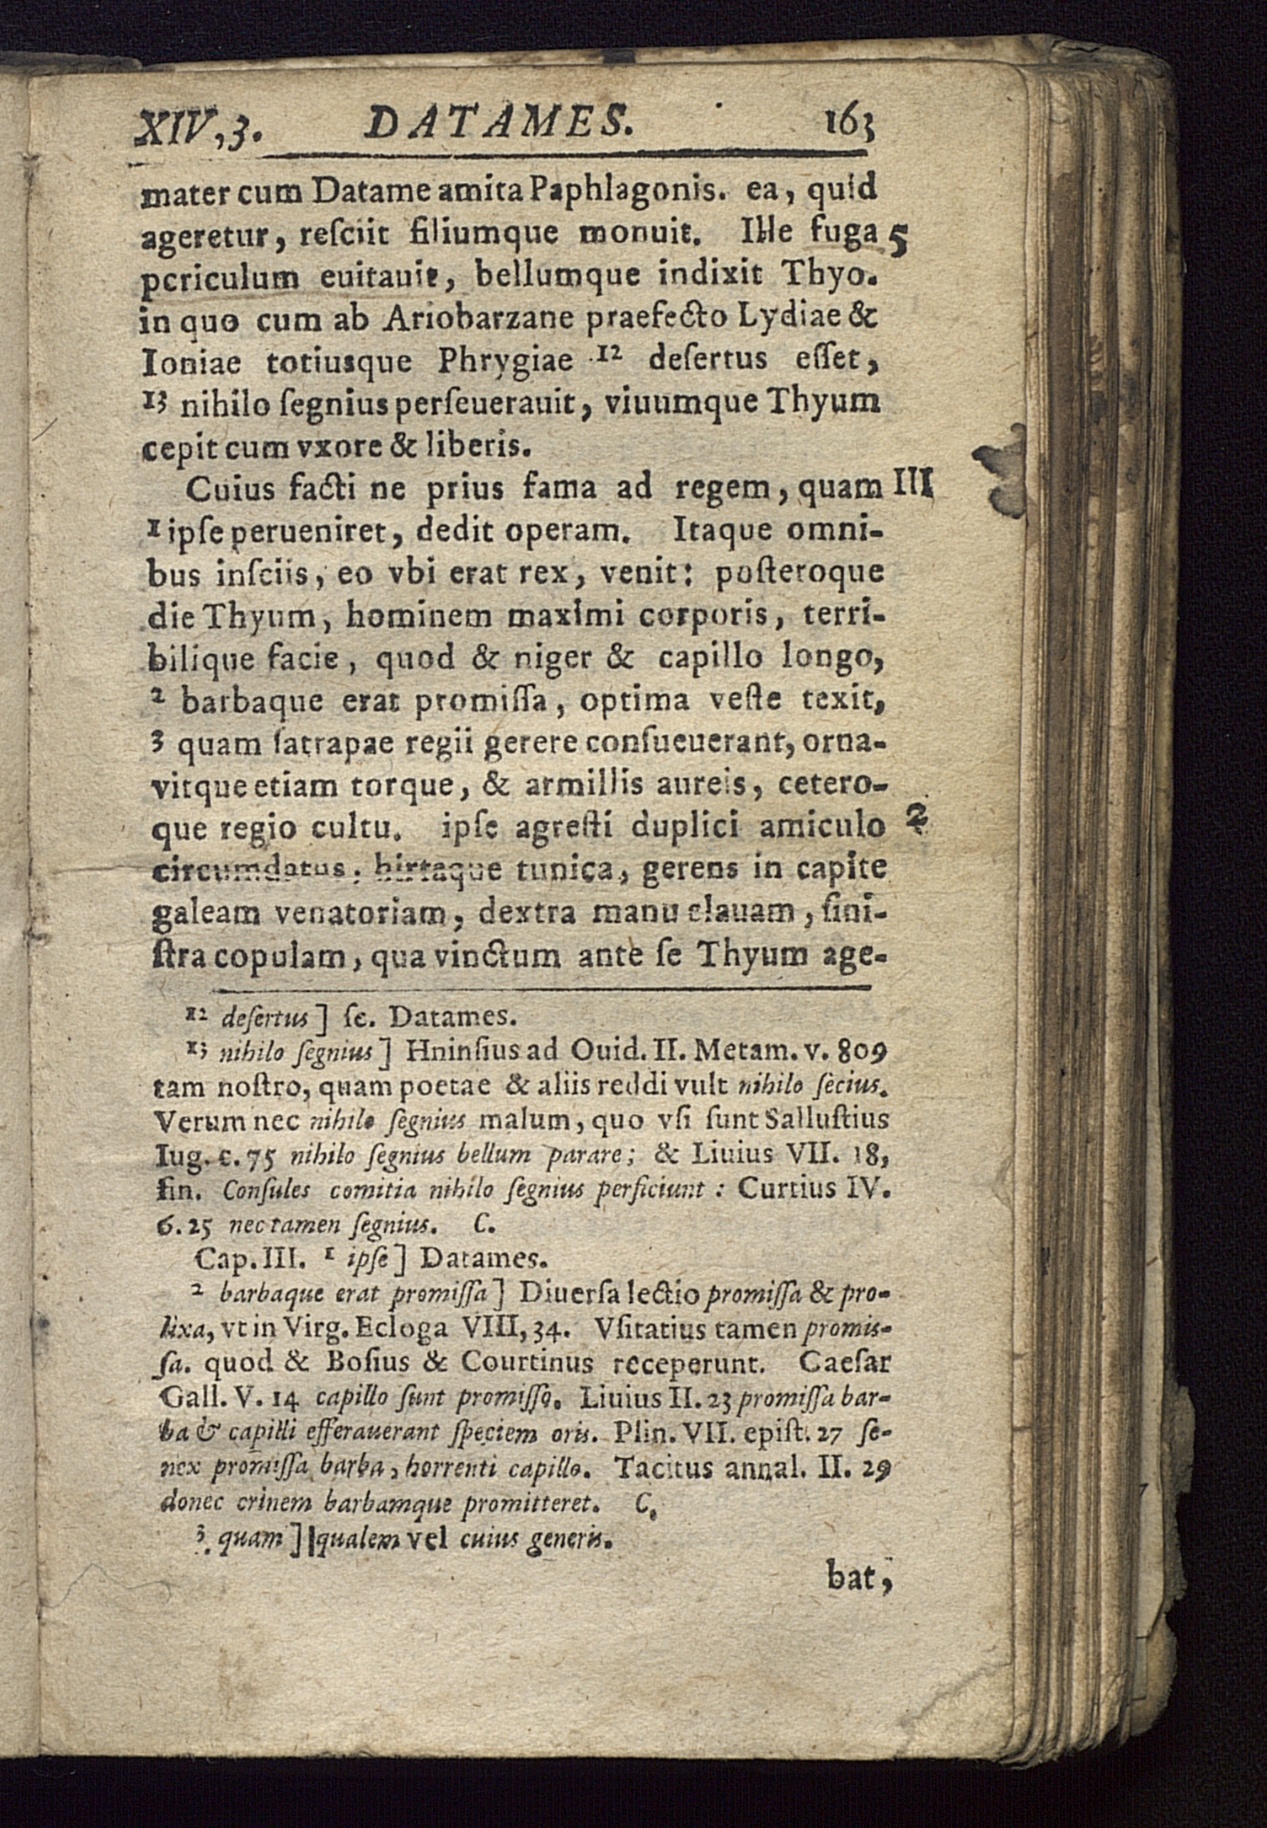 XIV,3. DATAMES. 163
mater cum Datame amita Paphlagonis. ea, quid
ageretur, reſciit filiumque monuit. Ille fuga 5
periculum euitauit, bellumque indixit Thyo.
in quo cum ab Ariobarzane praefecto Lydiae &
Ioniae totiusque Phrygiae 12 deſertus eſſet,
13 nihilo ſegnius perſeuerauit, viuumque Thyum
cepit cum vxore & liberis.
Cuius facti ne prius fama ad regem, quam III
1 ipſe perueniret, dedit operam. Itaque omni-
bus inſciis, eo vbi erat rex, venit: poſteroque
die Thyum, hominem maximi corporis, terri-
bilique facie, quod & niger & capillo longo,
2 barbaque erat promiſſa, optima veſte texit,
3 quam ſatrapae regii gerere conſueuerant, orna-
vitque etiam torque, & armillis aureis, cetero-
que regio cultu. ipſe agreſti duplici amiculo 2
circumdatus, hirtaque tunica, gerens in capite
galeam venatoriam, dextra manu clauam, ſini-
ſtra copulam, qua vinctum ante ſe Thyum age-
12 deſertus] ſc. Datames.
13 nihilo ſegnius] Hninſius ad Ouid. II. Metam. v. 809
tam noſtro, quam poetae & aliis reddi vult nihilo ſecius.
Verum nec nihilo ſegnius malum, quo vſi ſunt Salluſtius
Iug. c. 75 nihilo ſegnius bellum parare; & Liuius VII. 18,
fin. Conſules comitia nihilo ſegnius perficiunt: Curtius IV.
6. 25 nec tamen ſegnius. C.
Cap. III. 1 ipſe] Datames.
2 barbaque erat promiſſa] Diuerſa lectio promiſſa & pro-
lixa, vt in Virg. Ecloga VIII, 34. Vſitatius tamen promiſ-
ſa. quod & Boſius & Courtinus receperunt. Caeſar
Gall. V. 14 capillo ſunt promiſſo. Liuius II. 23 promiſſa bar-
ba & capilli efferauerant ſpeciem oris. Plin. VII. epiſt. 27 ſe-
nex promiſſa barba, horrenti capillo. Tacitus annal. II. 29
donec crinem barbamque promitteret. C.
3 quam] qualem vel cuius generis.
bat,